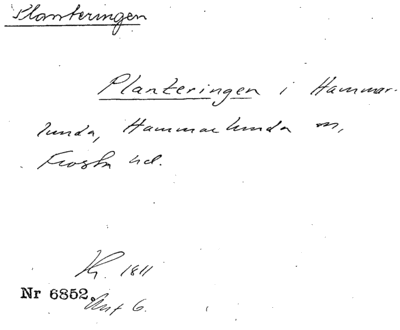 Planteringen
Planteringen i Hammar-
lunda, Hammarlunda sn,
Frosta hd.
1811
Nr 6852.
6.